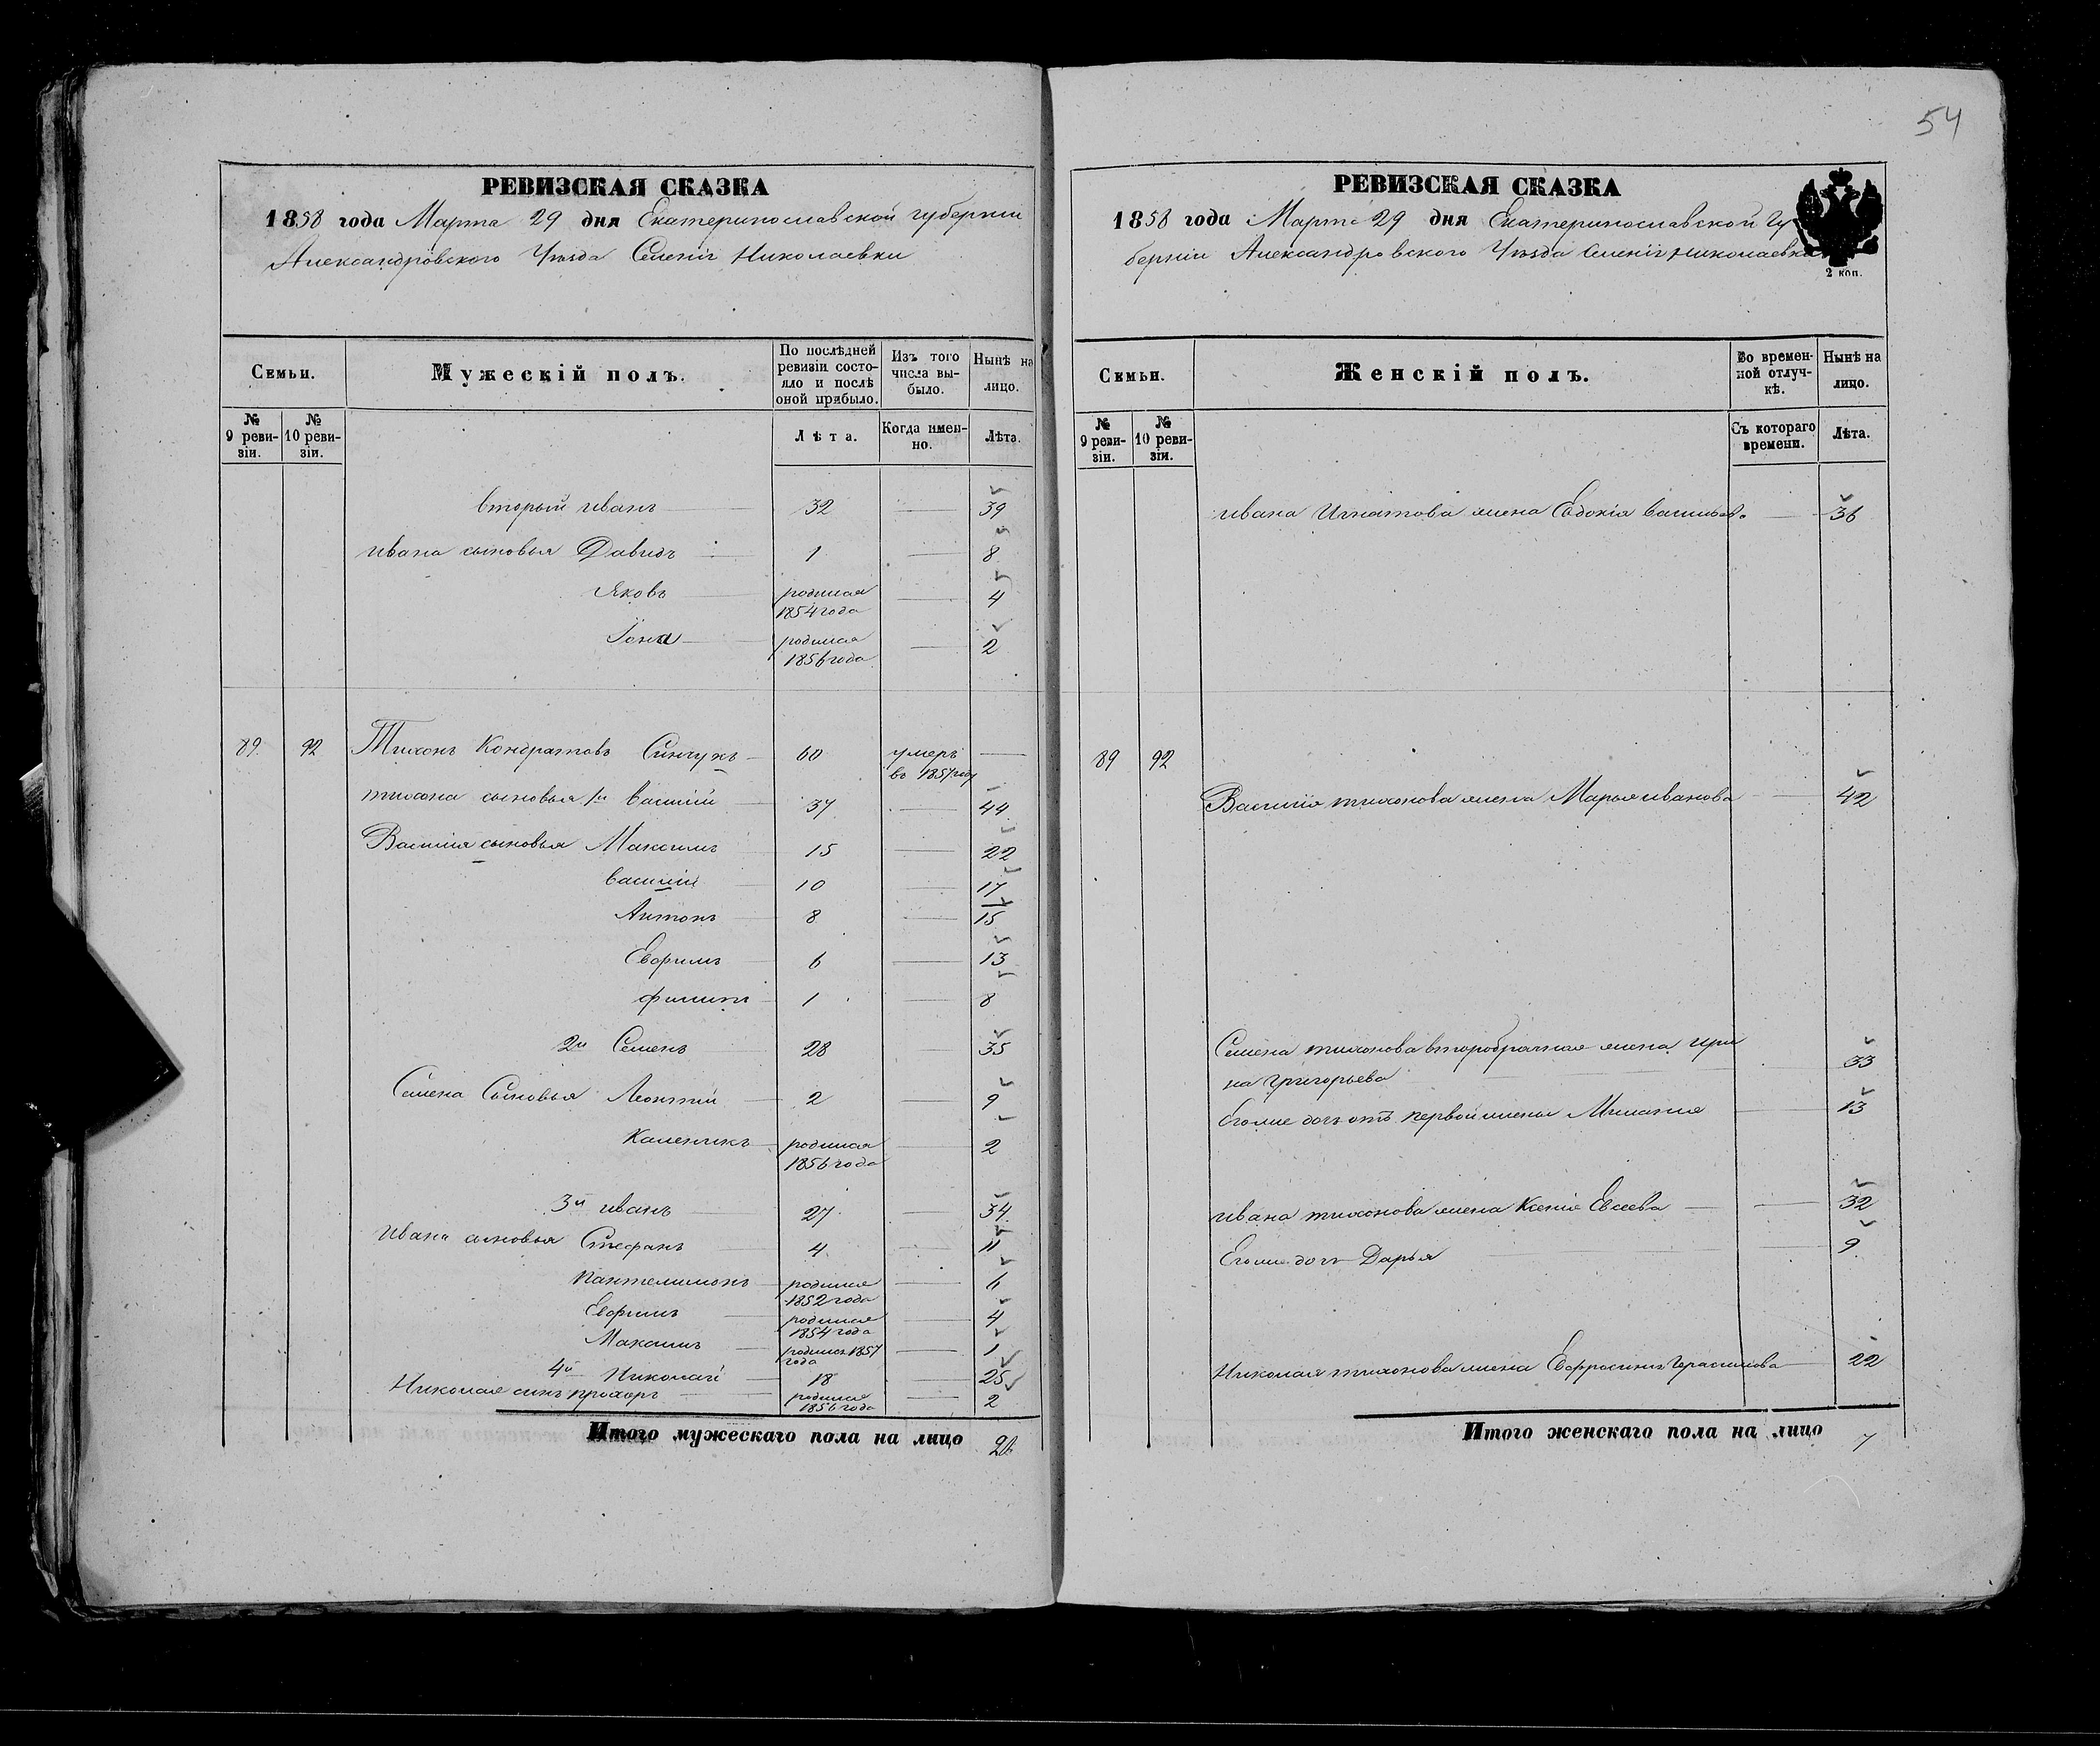 54
РЕВИЗСКАЯ СКАЗКА
1858 года Марта 29 дня Екатеринославской губернии
Александровского Уѣзда Селенія Николаевки
Семьи.
Мужескій полъ.
По послѣдней ревизіи состояло и послѣ оной прибыло.
Изъ того числа выбыло.
Нынѣ на лицо.
№ 9 ревизіи.
№ 10 ревизіи.
Лѣта.
Когда именно.
Лѣта.
вторый иванъ 32 — 39
ивана сыновья Давидъ 1 — 8
Яковъ родился 1854 года — 4
Іона родился 1856 года — 2
89. 92 Тихонъ Кондратовъ 60 умеръ въ 1857 году —
тихона сыновья 1й василій 37 — 44
Василія сыновья Максимъ 15 — 22
василій 10 — 17
Антонъ 8 — 15
Ефимъ 6 — 13
филипъ 1 — 8
2й Семенъ 28 — 35
Семена Сыновья Леонтій 2 — 9
Каленикъ родился 1856 года — 2
3й иванъ 27 — 34
ивана сыновья Стефанъ 4 — 11
пантелимонъ родился 1852 года — 6
Ефимъ родился 1854 года — 4
Максимъ родился 1857 года — 1
4й Николай 18 — 25
Николая сынъ прохоръ родился 1856 года — 2
Итого мужескаго пола на лицо 20
РЕВИЗСКАЯ СКАЗКА
1858 года Марта 29 дня Екатеринославской гу
берніи Александровского Уѣзда Селенія Николаевка
2 коп.
Семьи.
Женскій полъ.
Во временной отлучкѣ.
Нынѣ на лицо.
№ 9 ревизіи.
№ 10 ревизіи.
Съ котораго времени.
Лѣта.
ивана Игнатова жена Евдокія васильев. — 36
89 92
Василія тихонова жена Марья иванова — 42
Семена тихонова второбрачная жена ири
на Григорьева 33
его же дочь отъ первой жены — 13
ивана тихонова жена Ксенія Евсеева — 32
Его же дочь Дарья — 9
Николая тихонова жена Ефросинія Герасимова — 22
Итого женскаго пола на лицо 7